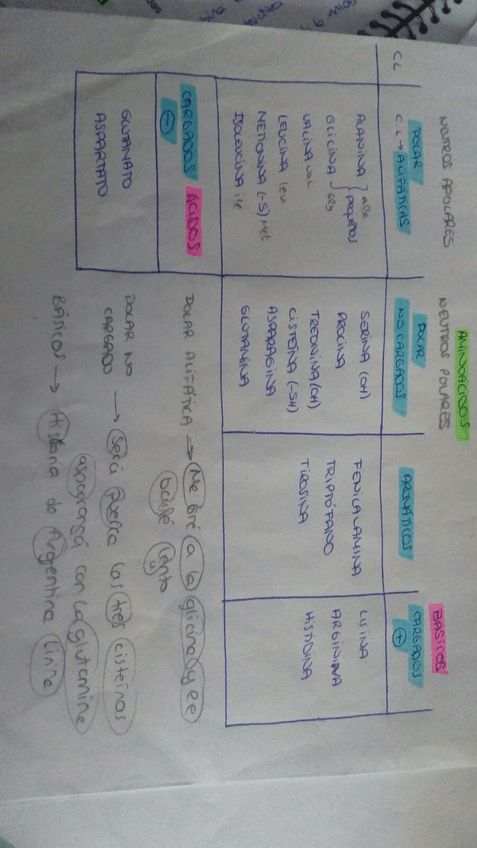 AMINOÁCIDOS
NEUTROS APOLARES
NEUTROS POLARES
BÁSICOS
CL
POLAR
CL → ALIFÁTICAS
POLAR
NO CARGADOS
AROMÁTICOS
CARGADOS
+
ALANINA ala
GLICINA gly
pequeños
VALINA val
LEUCINA leu
METIONINA (-S) met
ISOLEUCINA ile
SERINA (OH)
PROLINA
TREONINA (OH)
CISTEÍNA (-SH)
ASPARAGINA
GLUTAMINA
FENILALANINA
TRIPTÓFANO
TIROSINA
LISINA
ARGININA
HISTIDINA
CARGADOS ÁCIDOS
GLUTAMATO
ASPARTATO
POLAR ALIFÁTICA → Me iré a la glicina
lento
POLAR NO
CARGADO → Seré Perla las tres cisternas
con la glutamine
BÁSICOS → Historia de Argentina